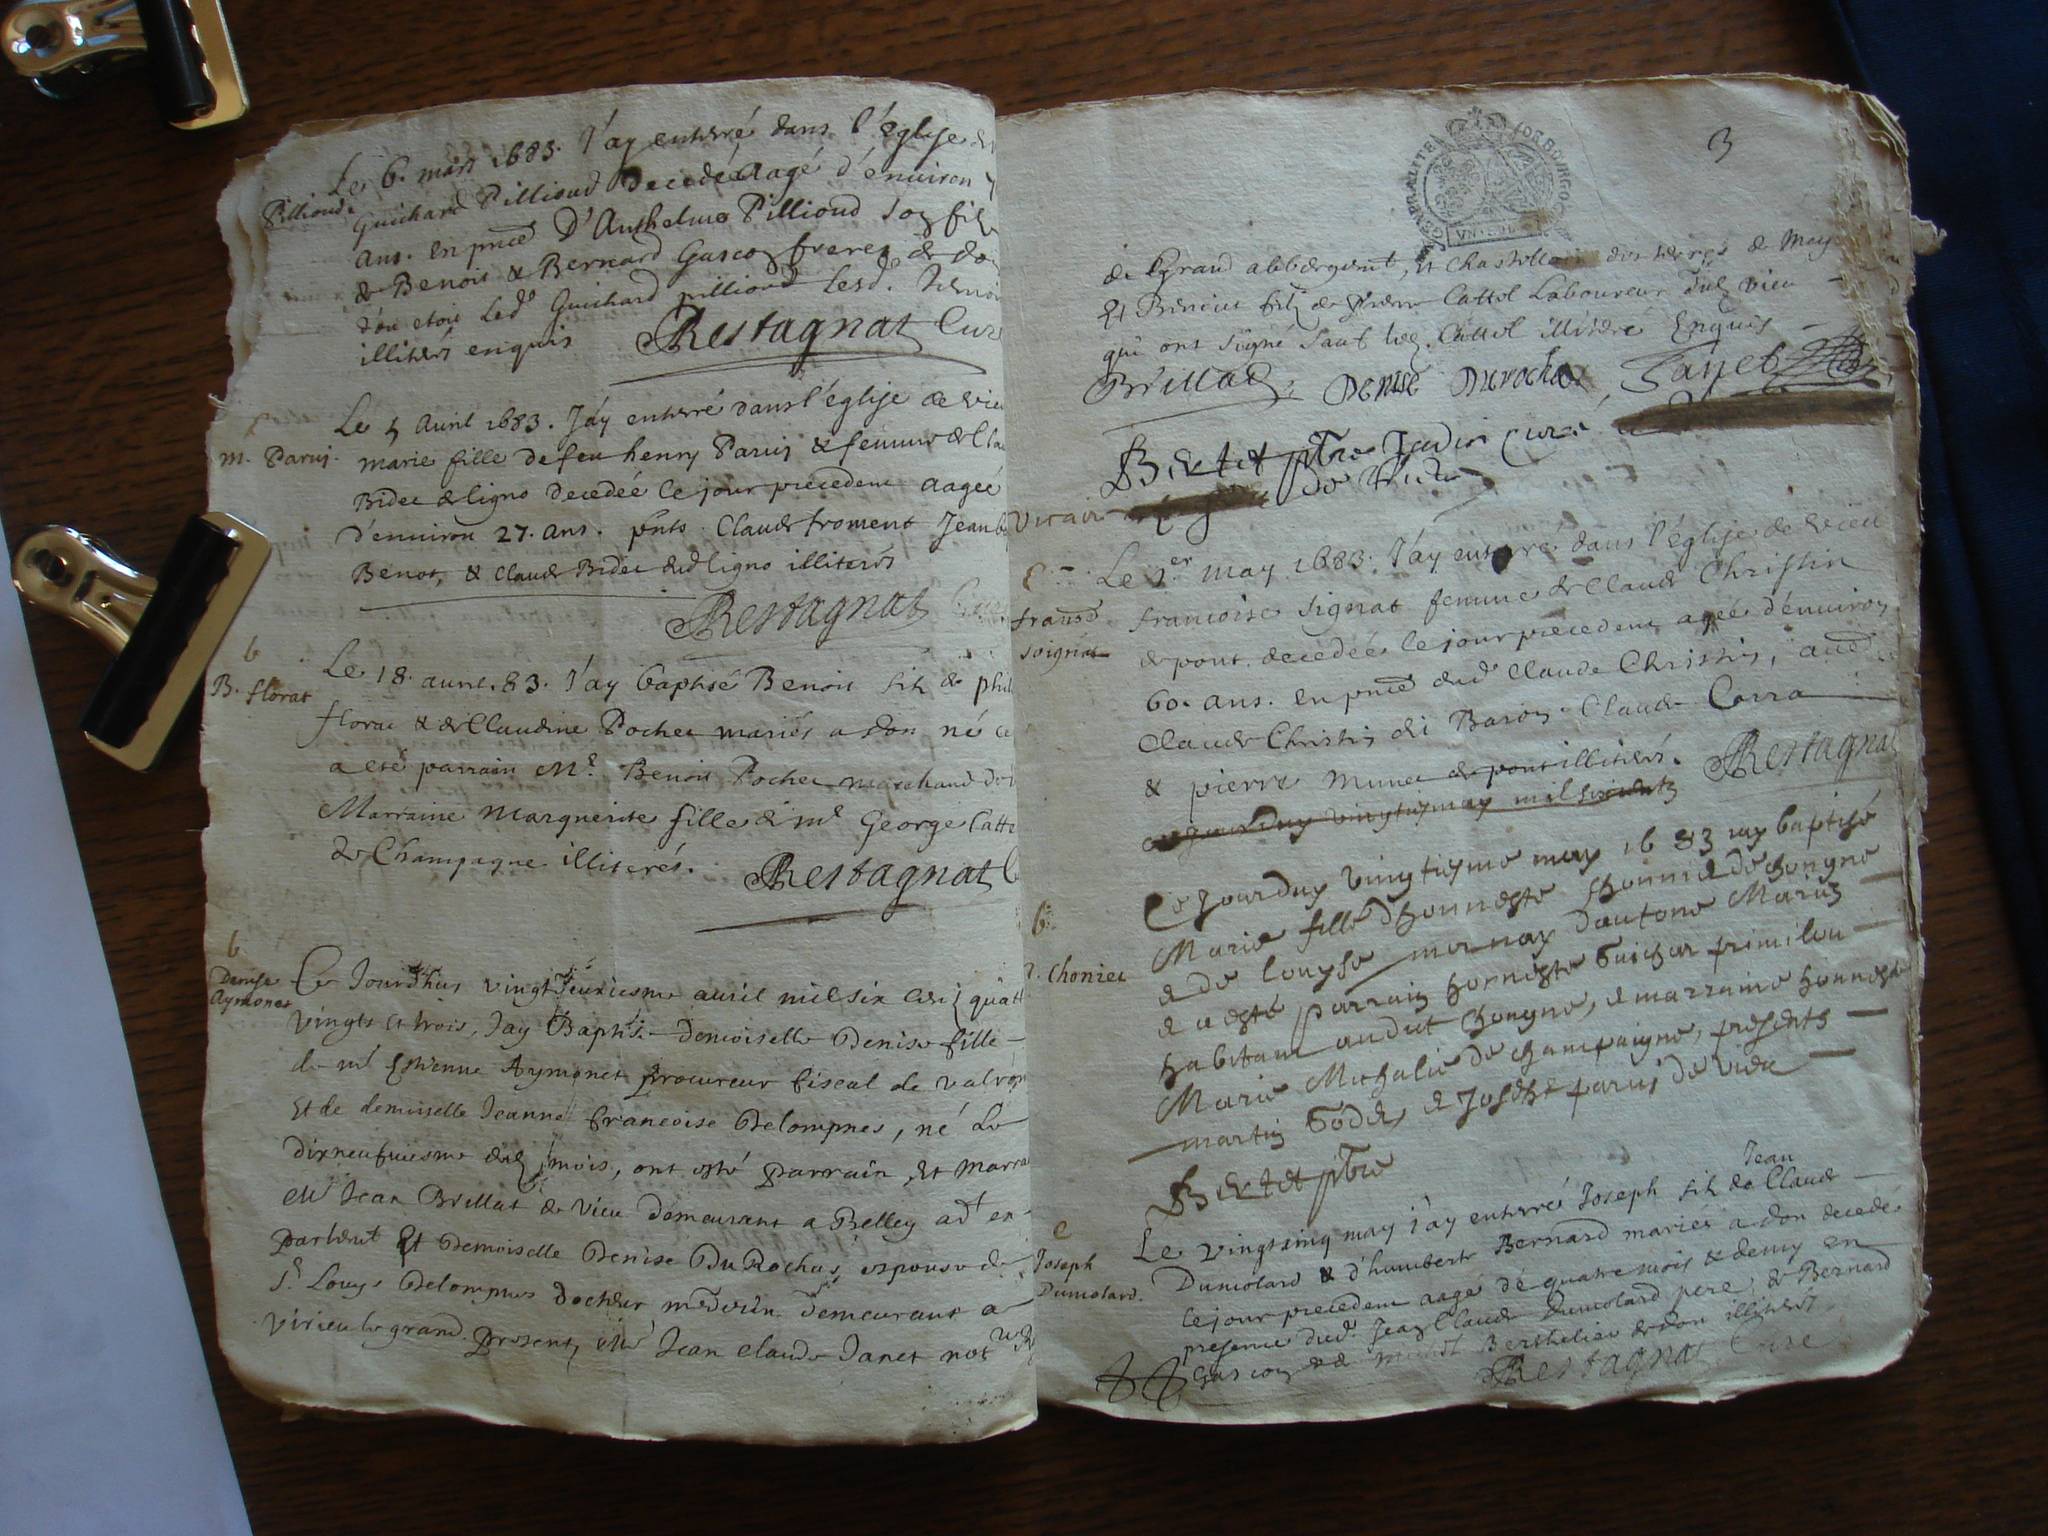 Le 6. mars 1683. J'ay enterré dans l'église de
Pillioud
Guichard Pillioud decedé aagé d'environ
ans. en pnce D'Anthelme Pillioud son filz
& Benoit & Bernard Gascon freres de don
d'ou etoit Led. Guichard pilliod lesd.
illiterés enquis Restagnat Curé
Le 5 Avril 1683. J'ay enterré dans l'église de vieu
m. Paruj. marie fille de feu henry Paruj & femme de Cla
Bidet de ligno decedée le jour precedent aagée
D'environ 27. ans. pnts Claude froment Jean
Benot, & Claude Bidet dud ligno illiterés
Restagnat Curé
b
B. florat
Le 18. avril. 83. J'ay baptisé Benoit filz de phil
florat & de Claudine Pochet mariés a don né ce
a eté parrain Mr. Benoit Pochet marchand de
Marraine Marguerite fille de mr George Catte
de Champagne illiterés. Restagnat C
b
Denise
Aymonet
Ce Jourdhuy vingt deuxiesme avril mil six cent quatt
vingts et trois, Jay Baptisé Demoiselle Denise fille
de mr Estienne Aymonet procureur fiscal de valrom
Et de demoiselle Jeanne francoise Delompnes, né Le
dixneufviesme dud mois, ont esté parrain Et marra
Mr Jean Brillat de vieu demeurant a Belley adt en
parlemt Et Demoiselle Denise DuRochat, espouse de
Sr Louys Delompnes docteur medecin demeurant a
virieu le grand. present, Mr Jean claude Janet notre
3
GEN PR ALITTE
FOR BORGO
VN SOL
de Grand abbergemt, et Chastellain des terres de
Et Benoit filz de pierre Cattol Laboureur dud vieu
qui ont signé sauf led. Cattol illiteré Enquis
Brillat, Denise Durochat Janet
Bertet pbre Jadis Curé
vicaire de Vieu
francse
soignat
Le 1er may 1683. J'ay enterré dans l'église de vieu
francoise signat femme de Claude Christin
de pont decedée le jour precedent agée d'environ
60. ans. en pnce dud Claude Christin,
Claude Christin dit Baron Claude Corra
& pierre Munet de pont illiterés. Restagnat
ce jourduy vingtiesme may mil six cents
b.
Choniee
Ce Jourduy vingtiesme may 1683 iay baptisé
Marie fille dhonneste de Chongne
& de louyse mornay d'autone Mariez
& a esté parrain honneste Guichar primilou
habitant audit Chongne, & marraine honneste
Marie Michalie de Champaigne, presents
martin Godet & Joseph Paruj de vieu
Bertet pbre
e
Joseph
Dumolard.
Jean
Le vingtcinq may j'ay enterré Joseph filz de Claude
Dumolard & d'humberte Bernard mariés a don decedé
le jour precedent aagé de quatre mois & demy en
presence dud. Jean Claude Dumolard pere, & Bernard
Gascon & Berthelier de don illiterés
Restagnat Curé